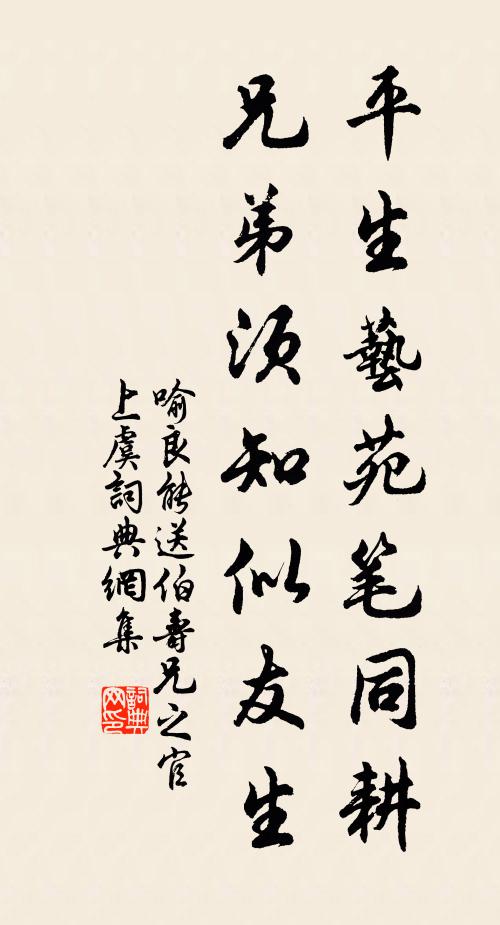 平生藝苑笔同耕
兄弟须知似友生
喻良能送伯壽兄之官
上虞詞典網集
詞典
网印